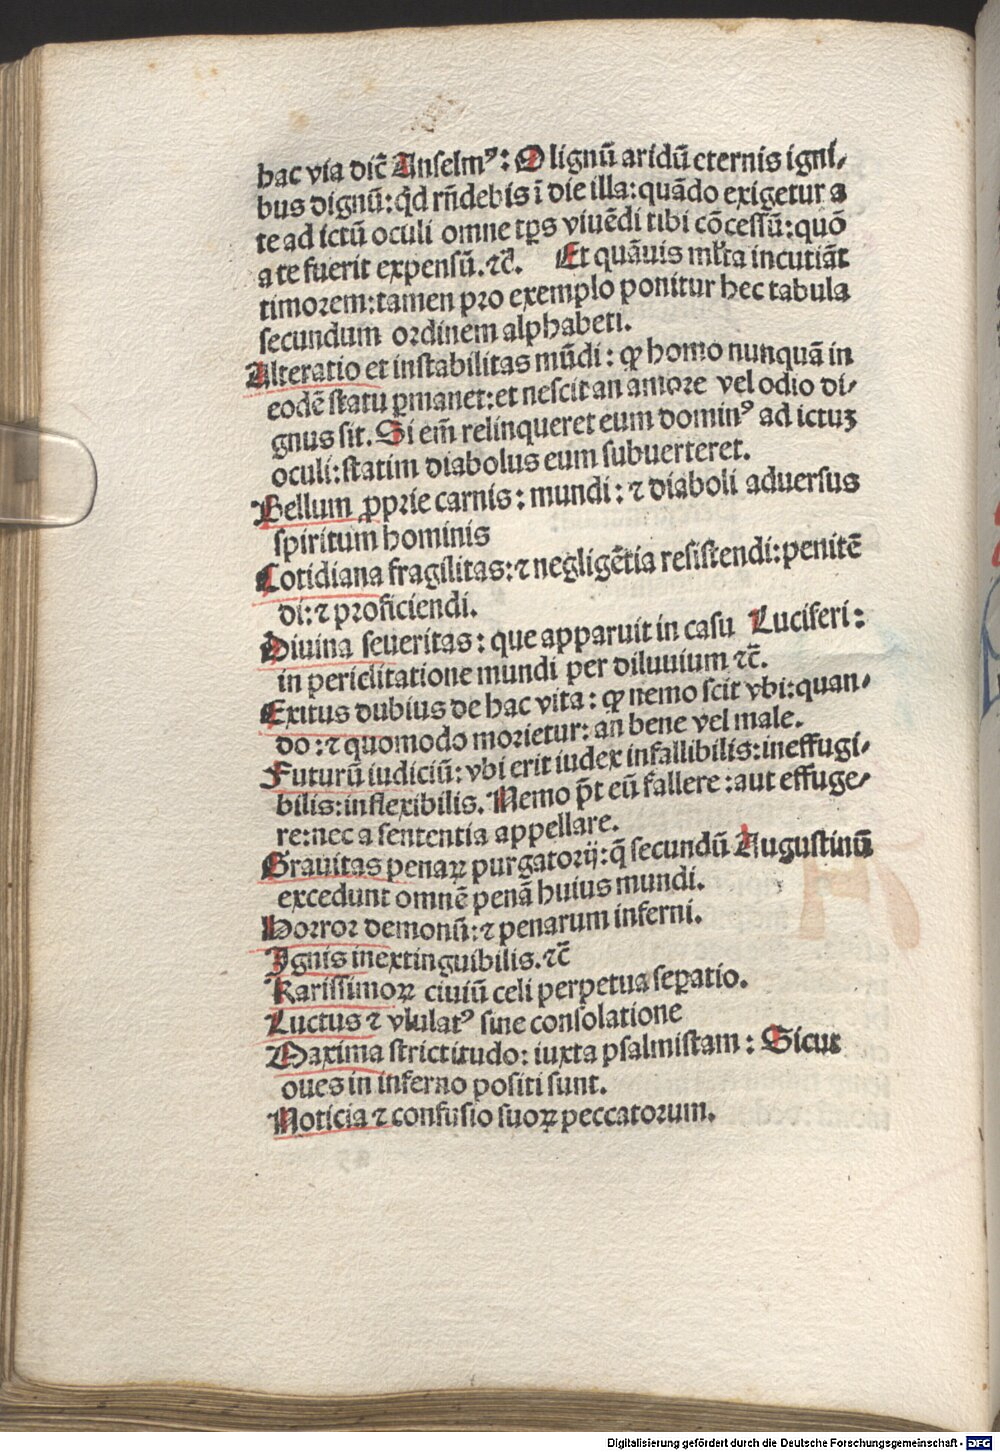 hac via dic̄ Anselmꝰ: O lignū aridū eternis igni⸗
bus dignū: qd̄ rn̄debis ī die illa: quādo exigetur a
te ad ictū oculi omne tp̄s viuēdi tibi cōcessū: quō
a te fuerit expensū. ⁊c̄. Et quāuis ml̄ta incutiāt
timorem: tamen pro exemplo ponitur hec tabula
secundum ordinem alphabeti.
Alteratio et instabilitas mūdi: qꝛ homo nunquā in
eodē statu ꝑmanet: et nescit an amore vel odio di⸗
gnus sit. Si em̄ relinqueret eum dominꝰ ad ictuꝫ
oculi: statim diabolus eum subuerteret.
Bellum ꝓprie carnis: mundi: ⁊ diaboli adversus
spiritum hominis
Cotidiana fragilitas: ⁊ negligētia resistendi: penitē
di: ⁊ proficiendi.
Divina severitas: que apparuit in casu Luciferi:
in periclitatione mundi per diluvium ⁊c̄.
Exitus dubius de hac vita: qꝛ nemo scit vbi: quan⸗
do: ⁊ quomodo morietur: an bene vel male.
Futurū iudiciū: vbi erit iudex infallibilis: ineffugi⸗
bilis: inflexibilis. Nemo pt̄ eū fallere: aut effuge⸗
re: nec a sententia appellare.
Gravitas penaꝝ purgatorij: q̄ secundū Augustinū
excedunt omnē penā huius mundi.
Horror demonū: ⁊ penarum inferni.
Ignis inextinguibilis. ⁊c̄
Karissimoꝝ civiū celi perpetua seꝑatio.
Luctus ⁊ vlulatꝰ sine consolatione
Maxima strictitudo: iuxta psalmistam: Sicut
oues in inferno positi sunt.
Noticia ⁊ confusio suoꝝ peccatorum.
Digitalisierung gefördert durch die Deutsche Forschungsgemeinschaft - DFG